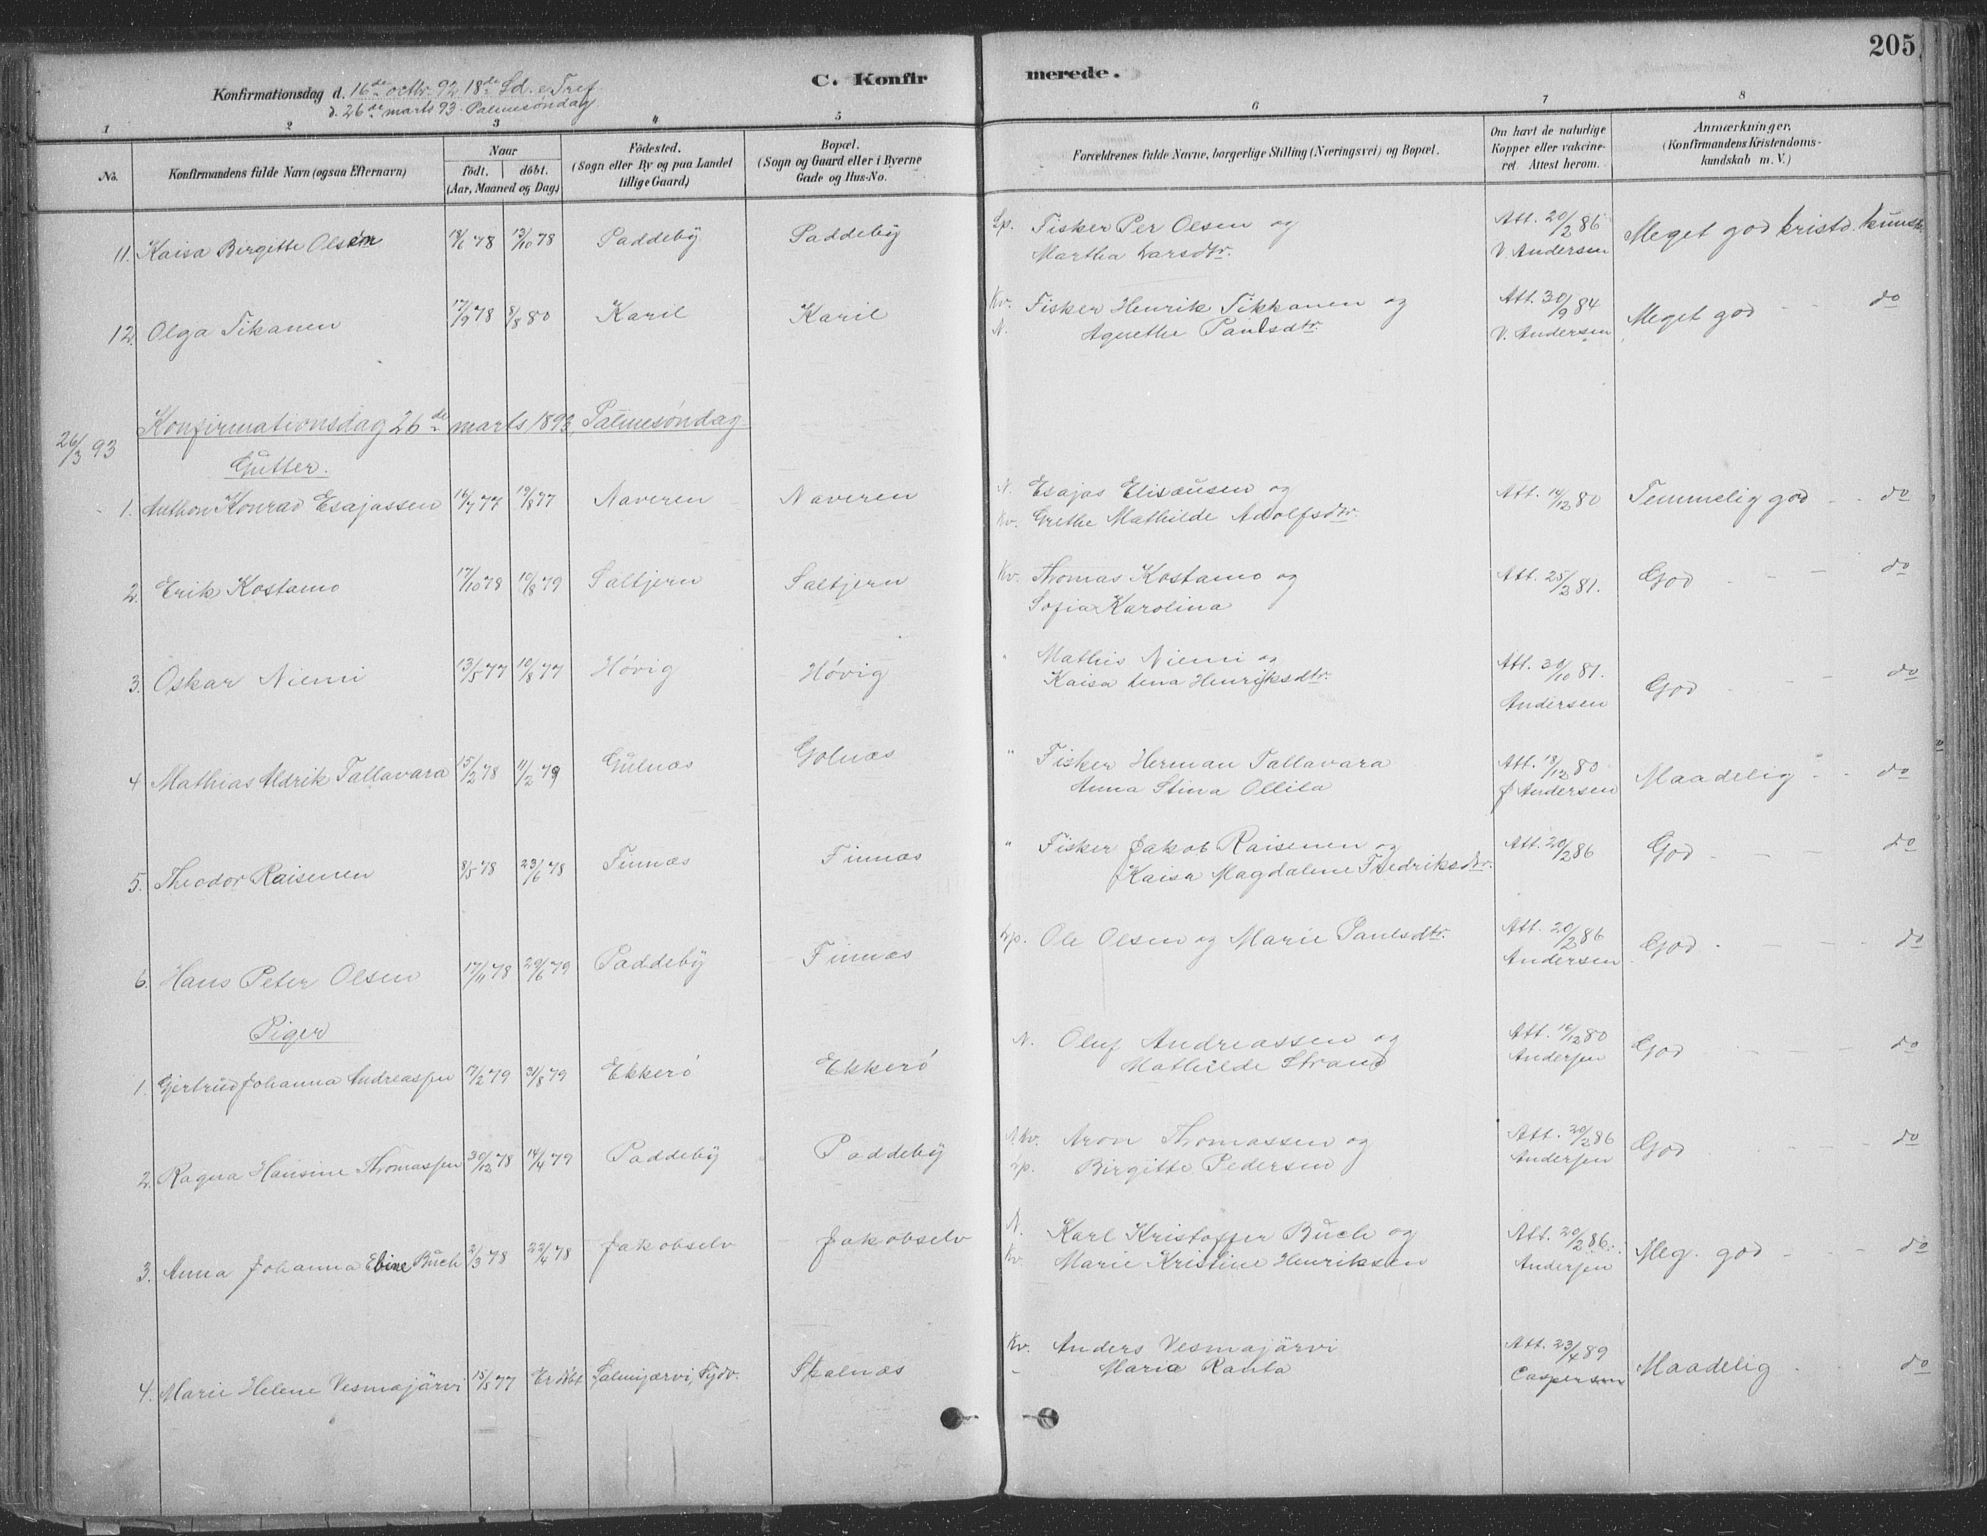 205
C. Konfirmerede.
Konfirmationsdag d. 16de octbr. 92 18de Sd. e. Tref.
d. 26de marts 93. Palmesøndag
1 2 3 4 5 6 7 8
No. Konfirmandens fulde Navn (ogsaa Efternavn) Naar födt. döbt. (Aar, Maaned og Dag) Födested. (Sogn eller By og paa Landet tillige Gaard) Bopæl. (Sogn og Gaard eller i Byerne Gade og Hus-No. Forældrenes fulde Navne, borgerlige Stilling (Næringsvei) og Bopæl. Om havt de naturlige Kopper eller vakcineret. Attest herom. Anmærkninger. (Konfirmandens Kristendomskundskab m. V.)
11. Kaisa Bergitte Olsen 18/6 78 13/10 78 Paddeby Paddeby Lp. Fisker Per Olsen og Att. 20/2 86 Meget god kristd. kundsk.
Martha Larsdtr. V. Andersen
12. Olga Tikanen 17/9 78 8/8 80 Karil Karil Kv. Fisker Henrik Tikkanen og Att. 30/9 84 Meget god do
N. Agnethe Paulsdtr V. Andersen
26/3 93 Konfirmationsdag 26de marts 1893, Palmesøndag
Gutter.
1. Anthon Konrad Esajassen 16/7 77 19/8 77 Naveren Naveren N. Esajas Elisæusen og Att. 14/12 80 Temmelig god do
Kv. Grethe Mathilde Adolfsdtr.
2. Erik Kostamo 17/10 78 10/8 79 Saltjern Saltjern Kv. Thomas Kostamo og Att. 25/2 81. God do
Sofia Karolina
3. Oskar Niemi 13/5 77 10/8 77 Høvig Høvig " Mathis Niemi og Att. 30/10 81. God do
Kaisa Lena Henriksdtr. Andersen
4 Mathias Aldrik Tallavara 15/2 78 11/2 79 Gulnæs Golnæs " Fisker Herman Tallavara Att. 18/12 80 Maadelig do
Anna Stina Ollila J Andersen
5. Theodor Raisenen 8/5 78 23/6 78 Finnæs Finnæs " Fisker Jakob Raisenen og Att. 20/2 86 God do
Kaisa Magdalene Fredriksdtr.
6. Hans Peter Olsen 17/11 78 29/6 79 Paddeby Finnæs Lp. Ole Olsen og Marie Paulsdtr. Att. 20/2 86 God do
Andersen
Piger
1. Gjertrud Johanna Andreassen 17/2 79 31/8 79 Ekkerö Ekkerö N. Oluf Andreassen og Att. 10/12 80 God do
Mathilde Strand Andersen
2. Ragna Hansine Thomassen 30/12 78 14/4 79 Paddeby Paddeby N. Kv. Aron Thomassen og Att. 20/2 86 God do
Lp. Birgitte Pedersen Andersen
3. Anna Johanna Eline Buch 2/3 78 22/4 78 Jakobselv Jakobselv N. Karl Kristoffer Buch og Att. 20/2 86. Meg. god do
Kv. Marie Kristine Henriksen Andersen
4. Marie Helene Vesmajärvi 15/5 77 Er döbt Salmijærvi, Sydv. Skalnæs Kv. Anders Vesmajärvi Att. 23/4 89 Maadelig do
Maria Ranta Caspersen